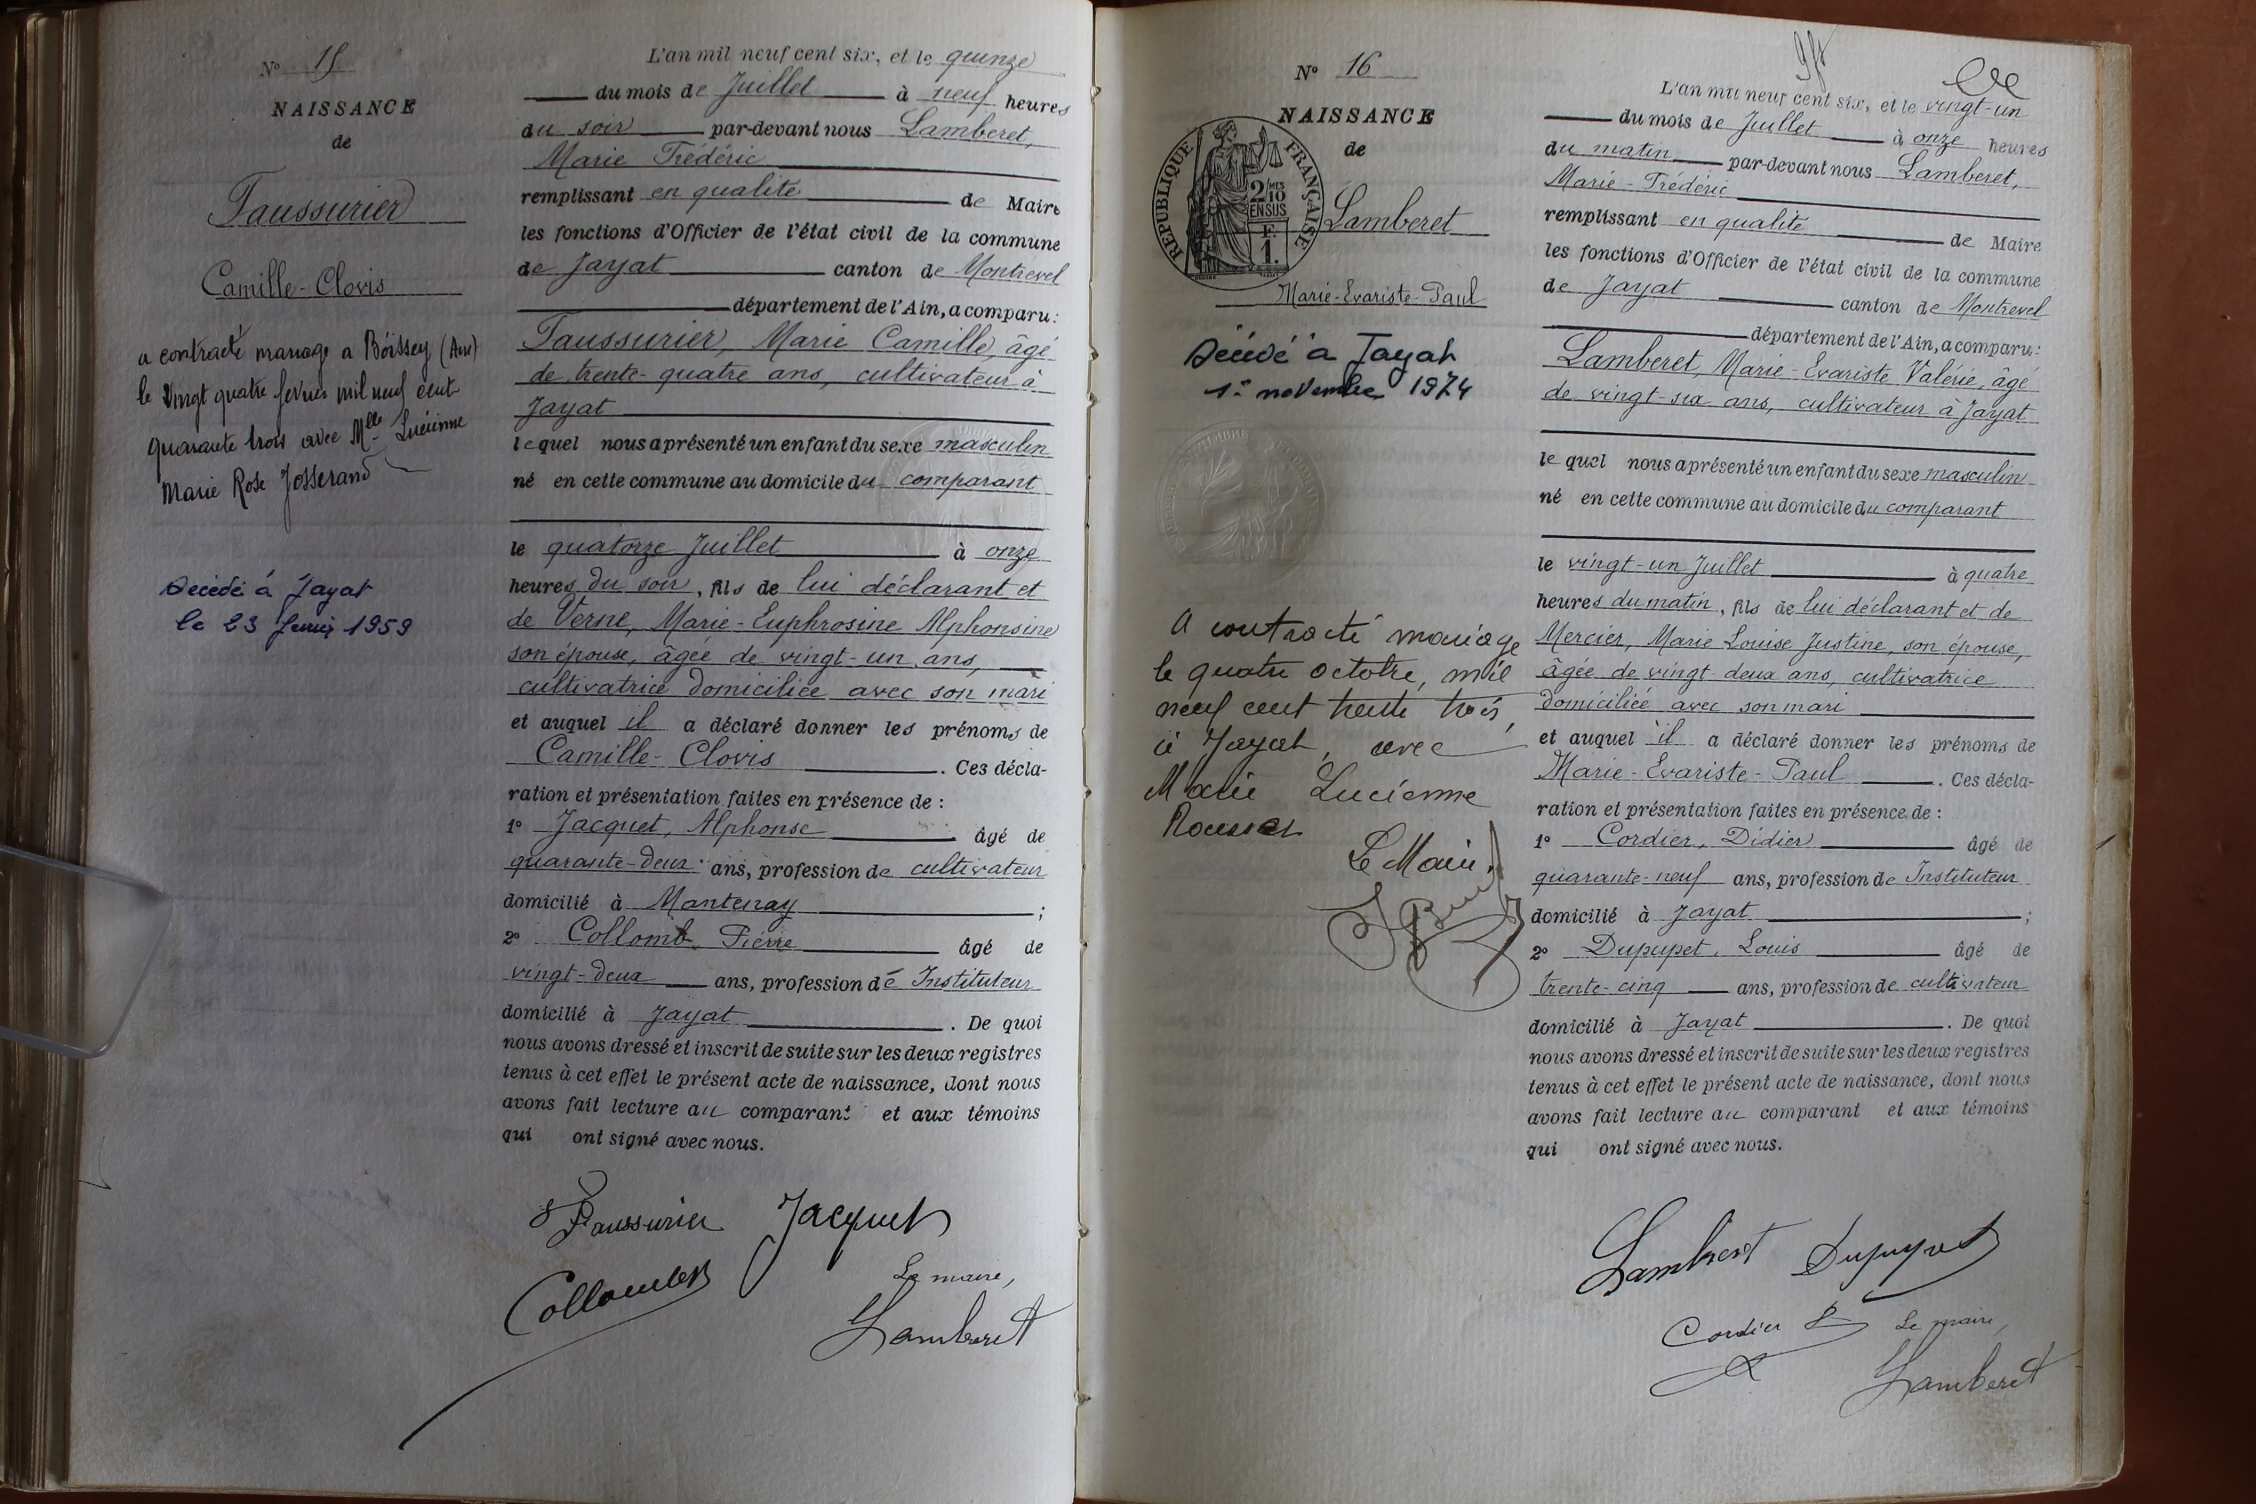 N° 15
NAISSANCE
de
Faussurier
Camille-Clovis
a contracté mariage a Boissey (Ain)
le vingt quatre fevrier mil neuf cent
quarante trois avec Mlle Lucienne
Marie Rose Josserand
Décédé à Jayat
le 23 fevrier 1959
L'an mil neuf cent six, et le quinze
du mois de Juillet à neuf heures
du soir par-devant nous Lamberet,
Marie Frédéric
remplissant en qualité de Maire
les fonctions d'Officier de l'état civil de la commune
de Jayat canton de Montrevel
département de l'Ain, a comparu :
Faussurier, Marie Camille, âgé
de trente-quatre ans, cultivateur à
Jayat
lequel nous a présenté un enfant du sexe masculin
né en cette commune au domicile du comparant
le quatorze Juillet à onze
heures du soir, fils de lui déclarant et
de Verne, Marie-Euphrosine Alphonsine
son épouse, âgée de vingt-un ans,
cultivatrice domiciliée avec son mari
et auquel il a déclaré donner les prénoms de
Camille-Clovis. Ces décla-
ration et présentation faites en présence de :
1° Jacquet, Alphonse âgé de
quarante-deux ans, profession de cultivateur
domicilié à Mantenay ;
2° Collomb, Pierre âgé de
vingt-deux ans, profession de Instituteur
domicilié à Jayat. De quoi
nous avons dressé et inscrit de suite sur les deux registres
tenus à cet effet le présent acte de naissance, dont nous
avons fait lecture au comparant et aux témoins
qui ont signé avec nous.
Faussurier Jacquet
Collomb
Le maire,
Lamberet
N° 16
NAISSANCE
de
RÉPUBLIQUE FRANÇAISE
2/10
EN SUS
F.
1.
Lamberet
Marie-Evariste-Paul
Décédé à Jayat
1er novembre 1974
A contracté mariage
le quatre octobre, mil
neuf cent trente trois,
à Jayat, avec
Marie Lucienne
Rousset
Le Maire,
L'an mil neuf cent six, et le vingt-un
du mois de Juillet à onze heures
du matin par-devant nous Lamberet,
Marie-Frédéric
remplissant en qualité de Maire
les fonctions d'Officier de l'état civil de la commune
de Jayat canton de Montrevel
département de l'Ain, a comparu :
Lamberet, Marie-Evariste Valérie, âgé
de vingt-six ans, cultivateur à Jayat
lequel nous a présenté un enfant du sexe masculin
né en cette commune au domicile du comparant
le vingt-un Juillet à quatre
heures du matin, fils de lui déclarant et de
Mercier, Marie Louise Justine, son épouse,
âgée de vingt-deux ans, cultivatrice
domiciliée avec son mari
et auquel il a déclaré donner les prénoms de
Marie-Evariste-Paul. Ces décla-
ration et présentation faites en présence de :
1° Cordier, Didier âgé de
quarante-neuf ans, profession de Instituteur
domicilié à Jayat ;
2° Dupupet, Louis âgé de
trente-cinq ans, profession de cultivateur
domicilié à Jayat. De quoi
nous avons dressé et inscrit de suite sur les deux registres
tenus à cet effet le présent acte de naissance, dont nous
avons fait lecture au comparant et aux témoins
qui ont signé avec nous.
Lamberet Dupupet
Cordier D
Le maire,
Lamberet